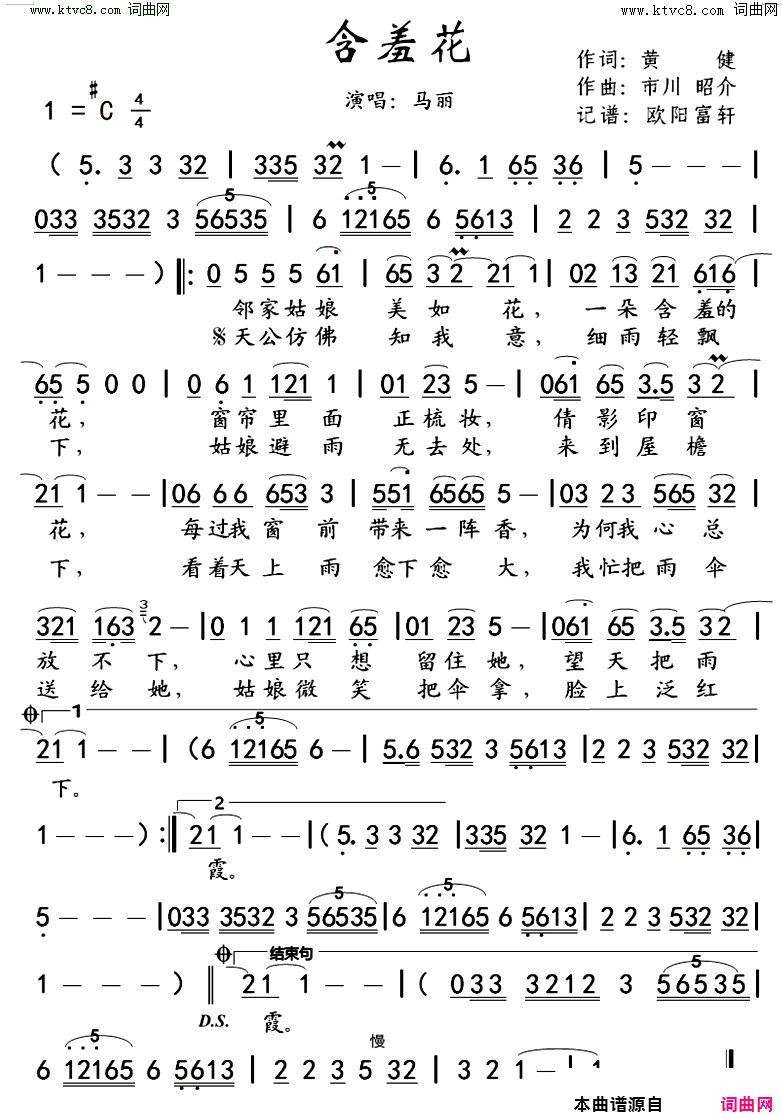 www.ktvc8.com 词曲网 www.ktvc8.com 词曲网
含羞花
作词：黄 健
作曲：市川 昭介
1 = #C 4/4 演唱：马丽
记谱：欧阳富轩
( 5. 3 3 32 | 335 32 1 — | 6. 1 65 36 | 5 — — — |
033 3532 3 56535 | 6 12165 6 5613 | 2 2 3 532 32 |
1 — — — ) ‖: 0 5 5 5 61 | 65 3 2 21 1 | 02 13 21 616 |
邻家姑娘 美如 花， 一朵含羞的
𝄋天公仿佛 知我 意， 细雨轻飘
65 5 0 0 | 0 6 1 121 1 | 01 23 5 — | 061 65 3.5 3 2 |
花， 窗帘里面 正梳妆， 倩影印窗
下， 姑娘避雨 无去处， 来到屋檐
21 1 — — | 06 66 653 3 | 551 6565 5 — | 03 23 565 32 |
花， 每过我窗前 带来一阵香， 为何我心总
下， 看着天上雨 愈下愈 大， 我忙把雨伞
321 163 3 2 — | 0 1 1 121 65 | 01 23 5 — | 061 65 3.5 32 |
放不下， 心里只想 留住她， 望天把雨
送给她， 姑娘微笑 把伞拿， 脸上泛红
1
21 1 — — | (6 12165 6 — | 5.6 532 3 5613 | 2 2 3 532 32 |
下。
2
1 — — — ) :‖ 21 1 — — | (5. 3 3 32 | 335 32 1 — | 6. 1 65 36 |
霞。
5 — — — | 033 3532 3 56535 | 6 12165 6 5613 | 2 2 3 532 32 |
结束句
1 — — — ) ‖ 21 1 — — | ( 033 3212 3 56535 |
D.S. 霞。
慢
6 12165 6 5613 | 2 2 3 532 5 | 1 — 1 1 ‖
本曲谱源自 词曲网